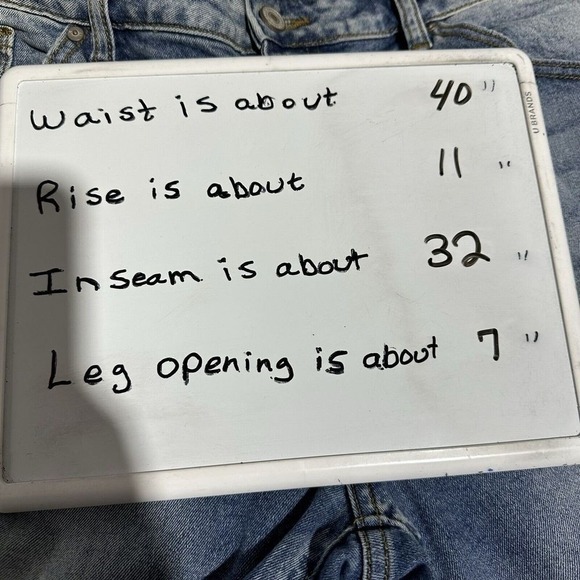 Waist is about 40"
Rise is about 11"
Inseam is about 32"
Leg opening is about 7"
U BRANDS